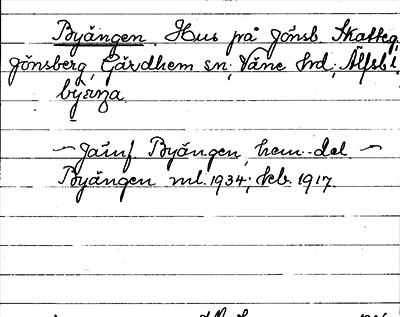 Byängen. Hus på Jönsb. Skatteg,
Jönsberg, Gärdhem sn; Väne hd; Älfsb. l.
byäŋa.
~ Jämf Byängen, hem.-del. ~
Byängen ml. 1934; kb. 1917.